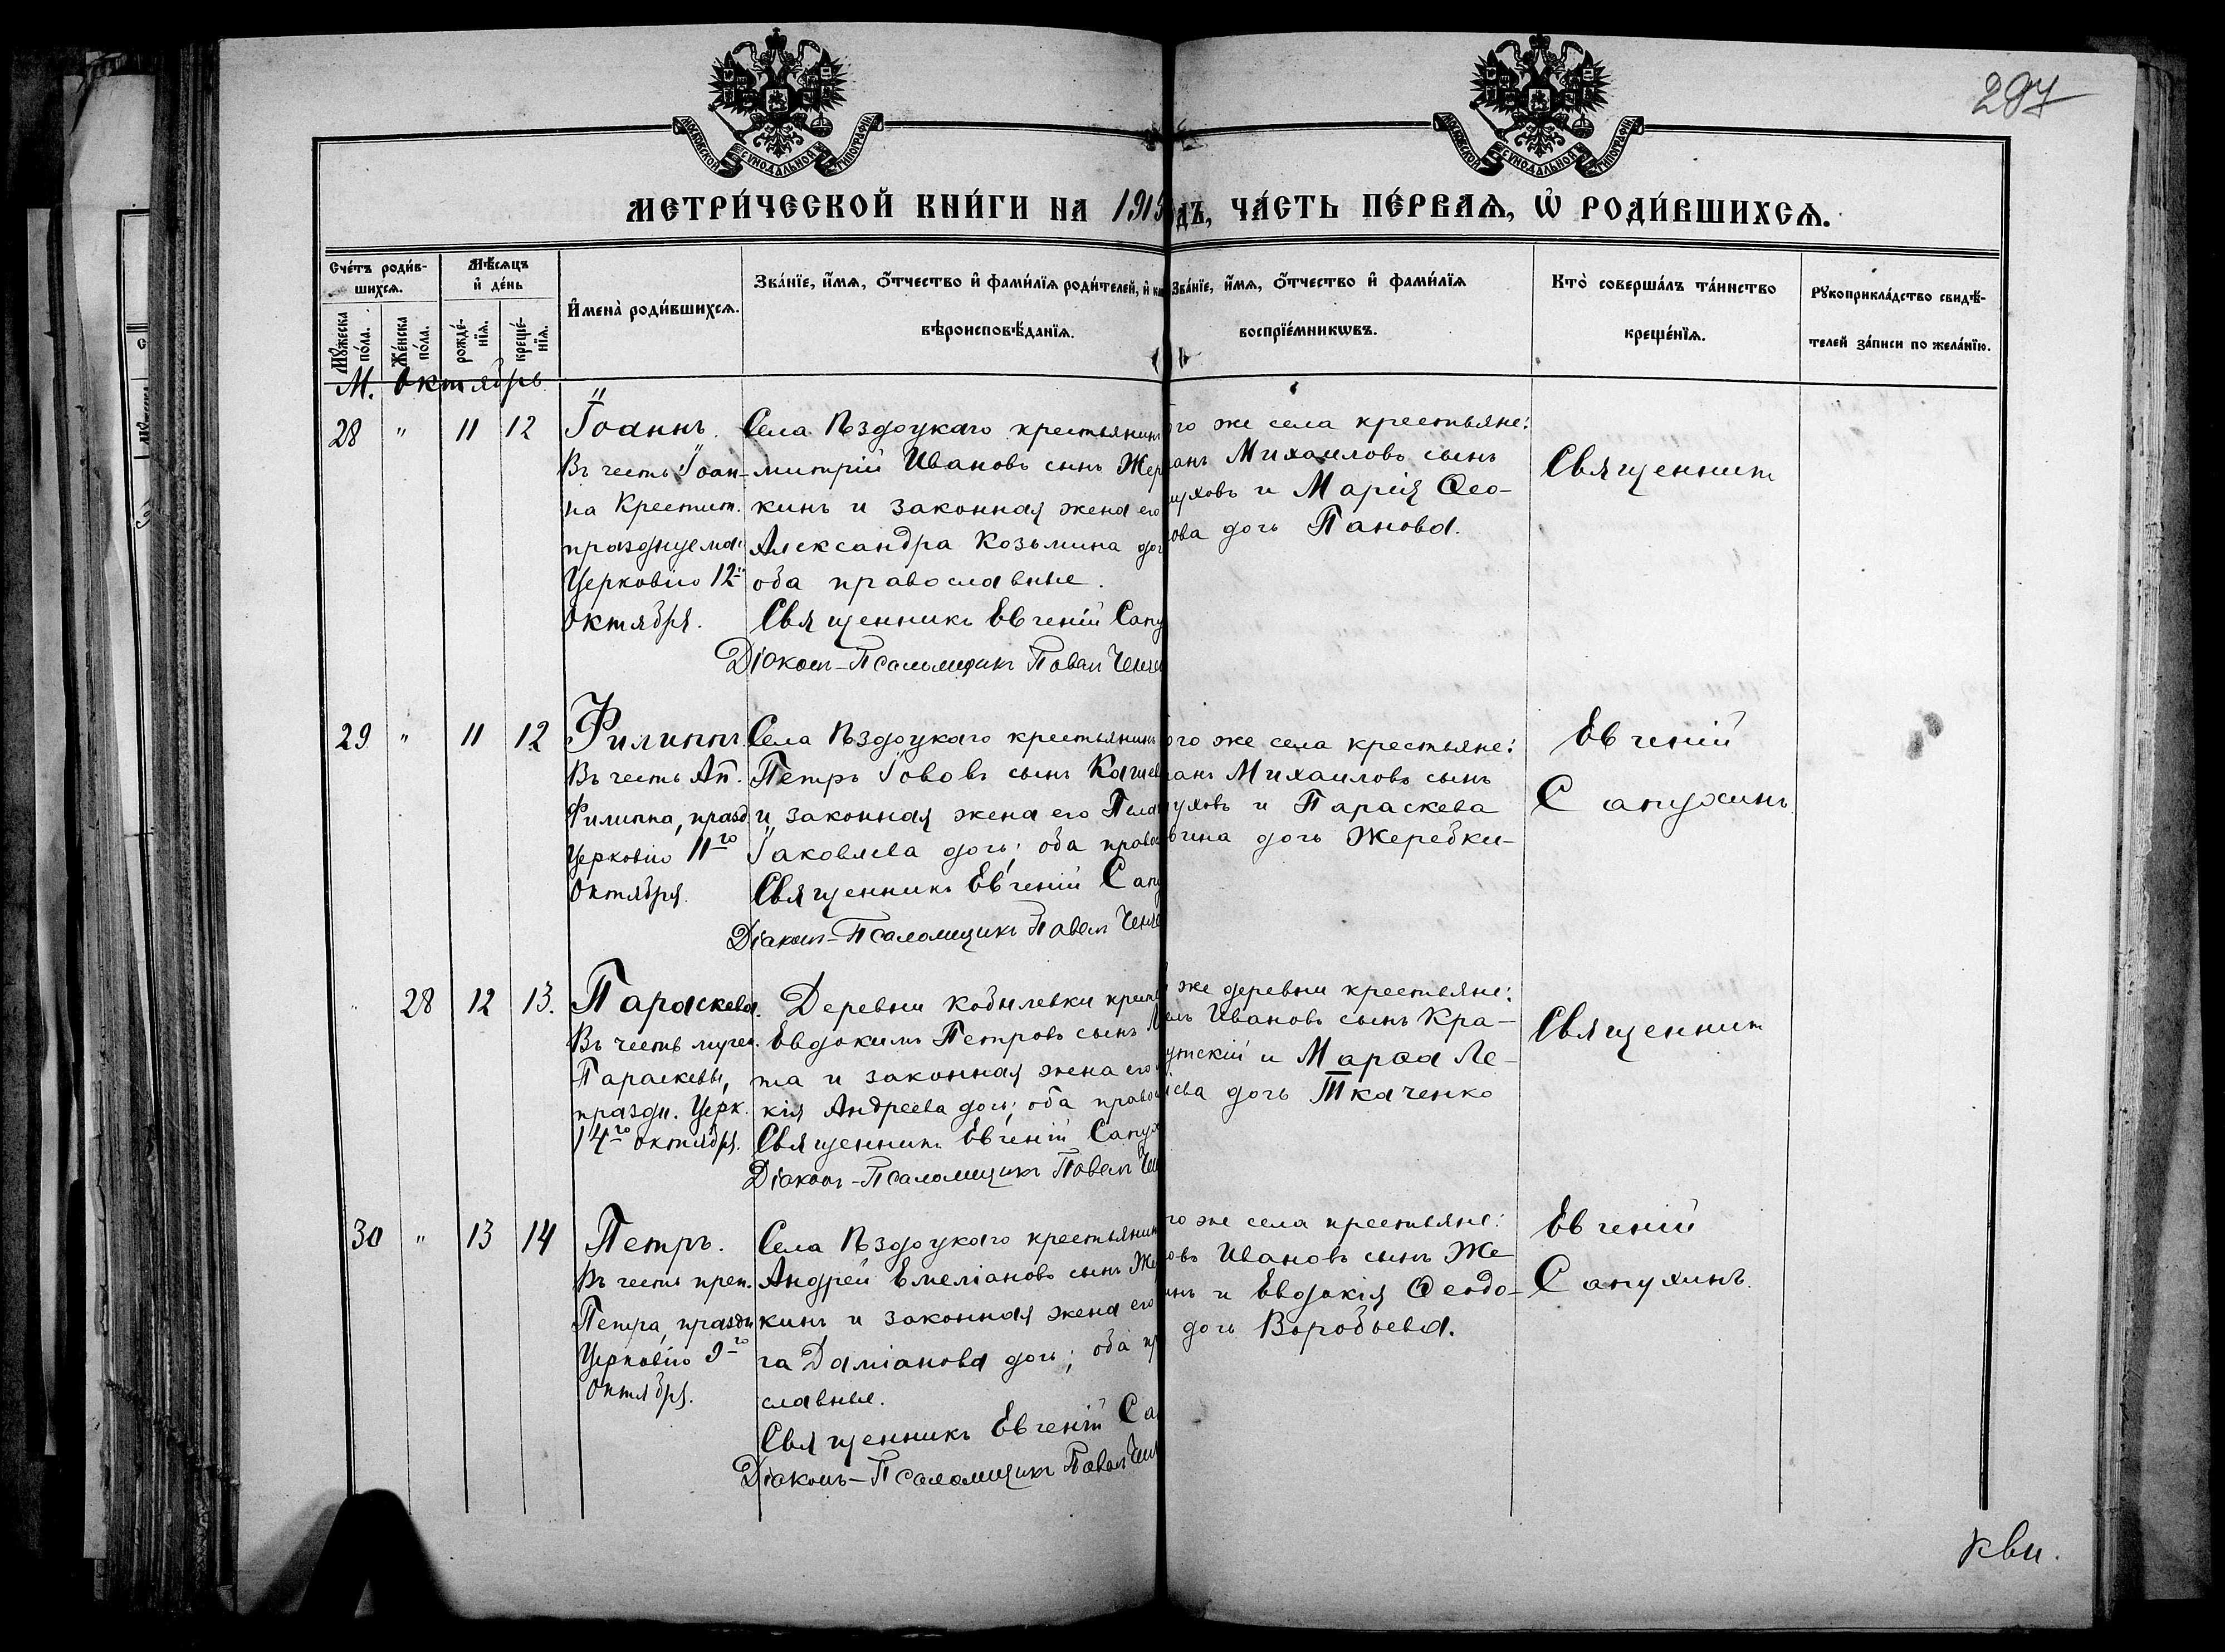 297
МОСКОВСКОЙ СУНОДАЛЬНОЙ ТИПОГРАФІИ
МОСКОВСКОЙ СУНОДАЛЬНОЙ ТИПОГРАФІИ
МЕТРИ́ЧЕСКОЙ КНИ́ГИ НА 1915
дъ, ЧА́СТЬ ПЕ́РВАѦ, Ѡ҆ РОДИ́ВШИХСѦ.
Сче́тъ роди́в-
шихсѧ.
Мꙋ́жеска по́ла.
Же́нска по́ла.
Мѣ́сѧцъ
и҆ де́нь
рожде́-
нїѧ.
креще́-
нїѧ.
И҆мена̀ роди́вшихсѧ.
Зва́нїе, и҆́мѧ, ѻ҆́тчество и҆ фами́лїѧ роди́телей, и҆
вѣроисповѣ́данїѧ.
Зва́нїе, и҆́мѧ, ѻ҆́тчество и҆ фами́лїѧ
воспрїе́мникѡвъ.
Кто̀ соверша́лъ та́инство
креще́нїѧ.
Рꙋкоприкла́дство свидѣ́-
телей за́писи по жела́нїю.
М. Октябрь
28 " 11 12
Іоаннъ.
Въ честь Іоан-
на Крестит.
празднуема
Церковію 12
Октября.
Села Ѣздоцкаго крестьянинъ
митрій Ивановъ сынъ Жер
кинъ и законная жена его
Александра Козьмина до
оба православные.
Священникъ Евгеній Сапу
Діаконъ-Псаломщикъ Павел
го же села крестьяне:
анъ Михаиловъ сынъ
уховъ и Марія Ѳео-
ова дочь Панова.
Священник
29 " 11 12
Филиппъ.
Въ честь Ап.
Филиппа, празд
Церковію 11го
Октября.
Села Ѣздоцкаго крестьянинъ
Петръ Іововъ сынъ Кашев
и законная жена его Пела
Іаковлева дочь; оба право
Священникъ Евгеній Сапу
Діаконъ-Псаломщикъ Павел
ого же села крестьяне:
анъ Михаиловъ сынъ
уховъ и Параскева
вина дочь Жеребки-
Евгеній
Сапухинъ
" 28 12 13.
Параскева.
Въ честь мучен.
Параскевы,
праздн. Церк.
14го октября.
Деревни Кобылевки крест
Евдокимъ Петровъ сынъ
та и законная жена его
кія Андреева дочь; оба право
Священникъ Евгеній Сапу
Діаконъ-Псаломщикъ Павел
же деревни крестьяне:
Ивановъ сынъ Кра-
утскій и Марѳа Ле-
ева дочь Ткаченко
Священник
30 " 13 14
Петръ.
Въ честь преп.
Петра, праздн
Церковію 9го
Октября.
Села Ѣздоцкаго крестьянин
Андрей Емеліановъ сынъ Же
кинъ и законная жена его
га Даміанова дочь; оба пр
славные.
Священникъ Евгеній Са
Діаконъ-Псаломщикъ Павел
го же села крестьяне:
овъ Ивановъ сынъ Же
инъ и Евдокія Ѳеодо-
дочь Воробьева.
Евгеній
Сапухинъ.